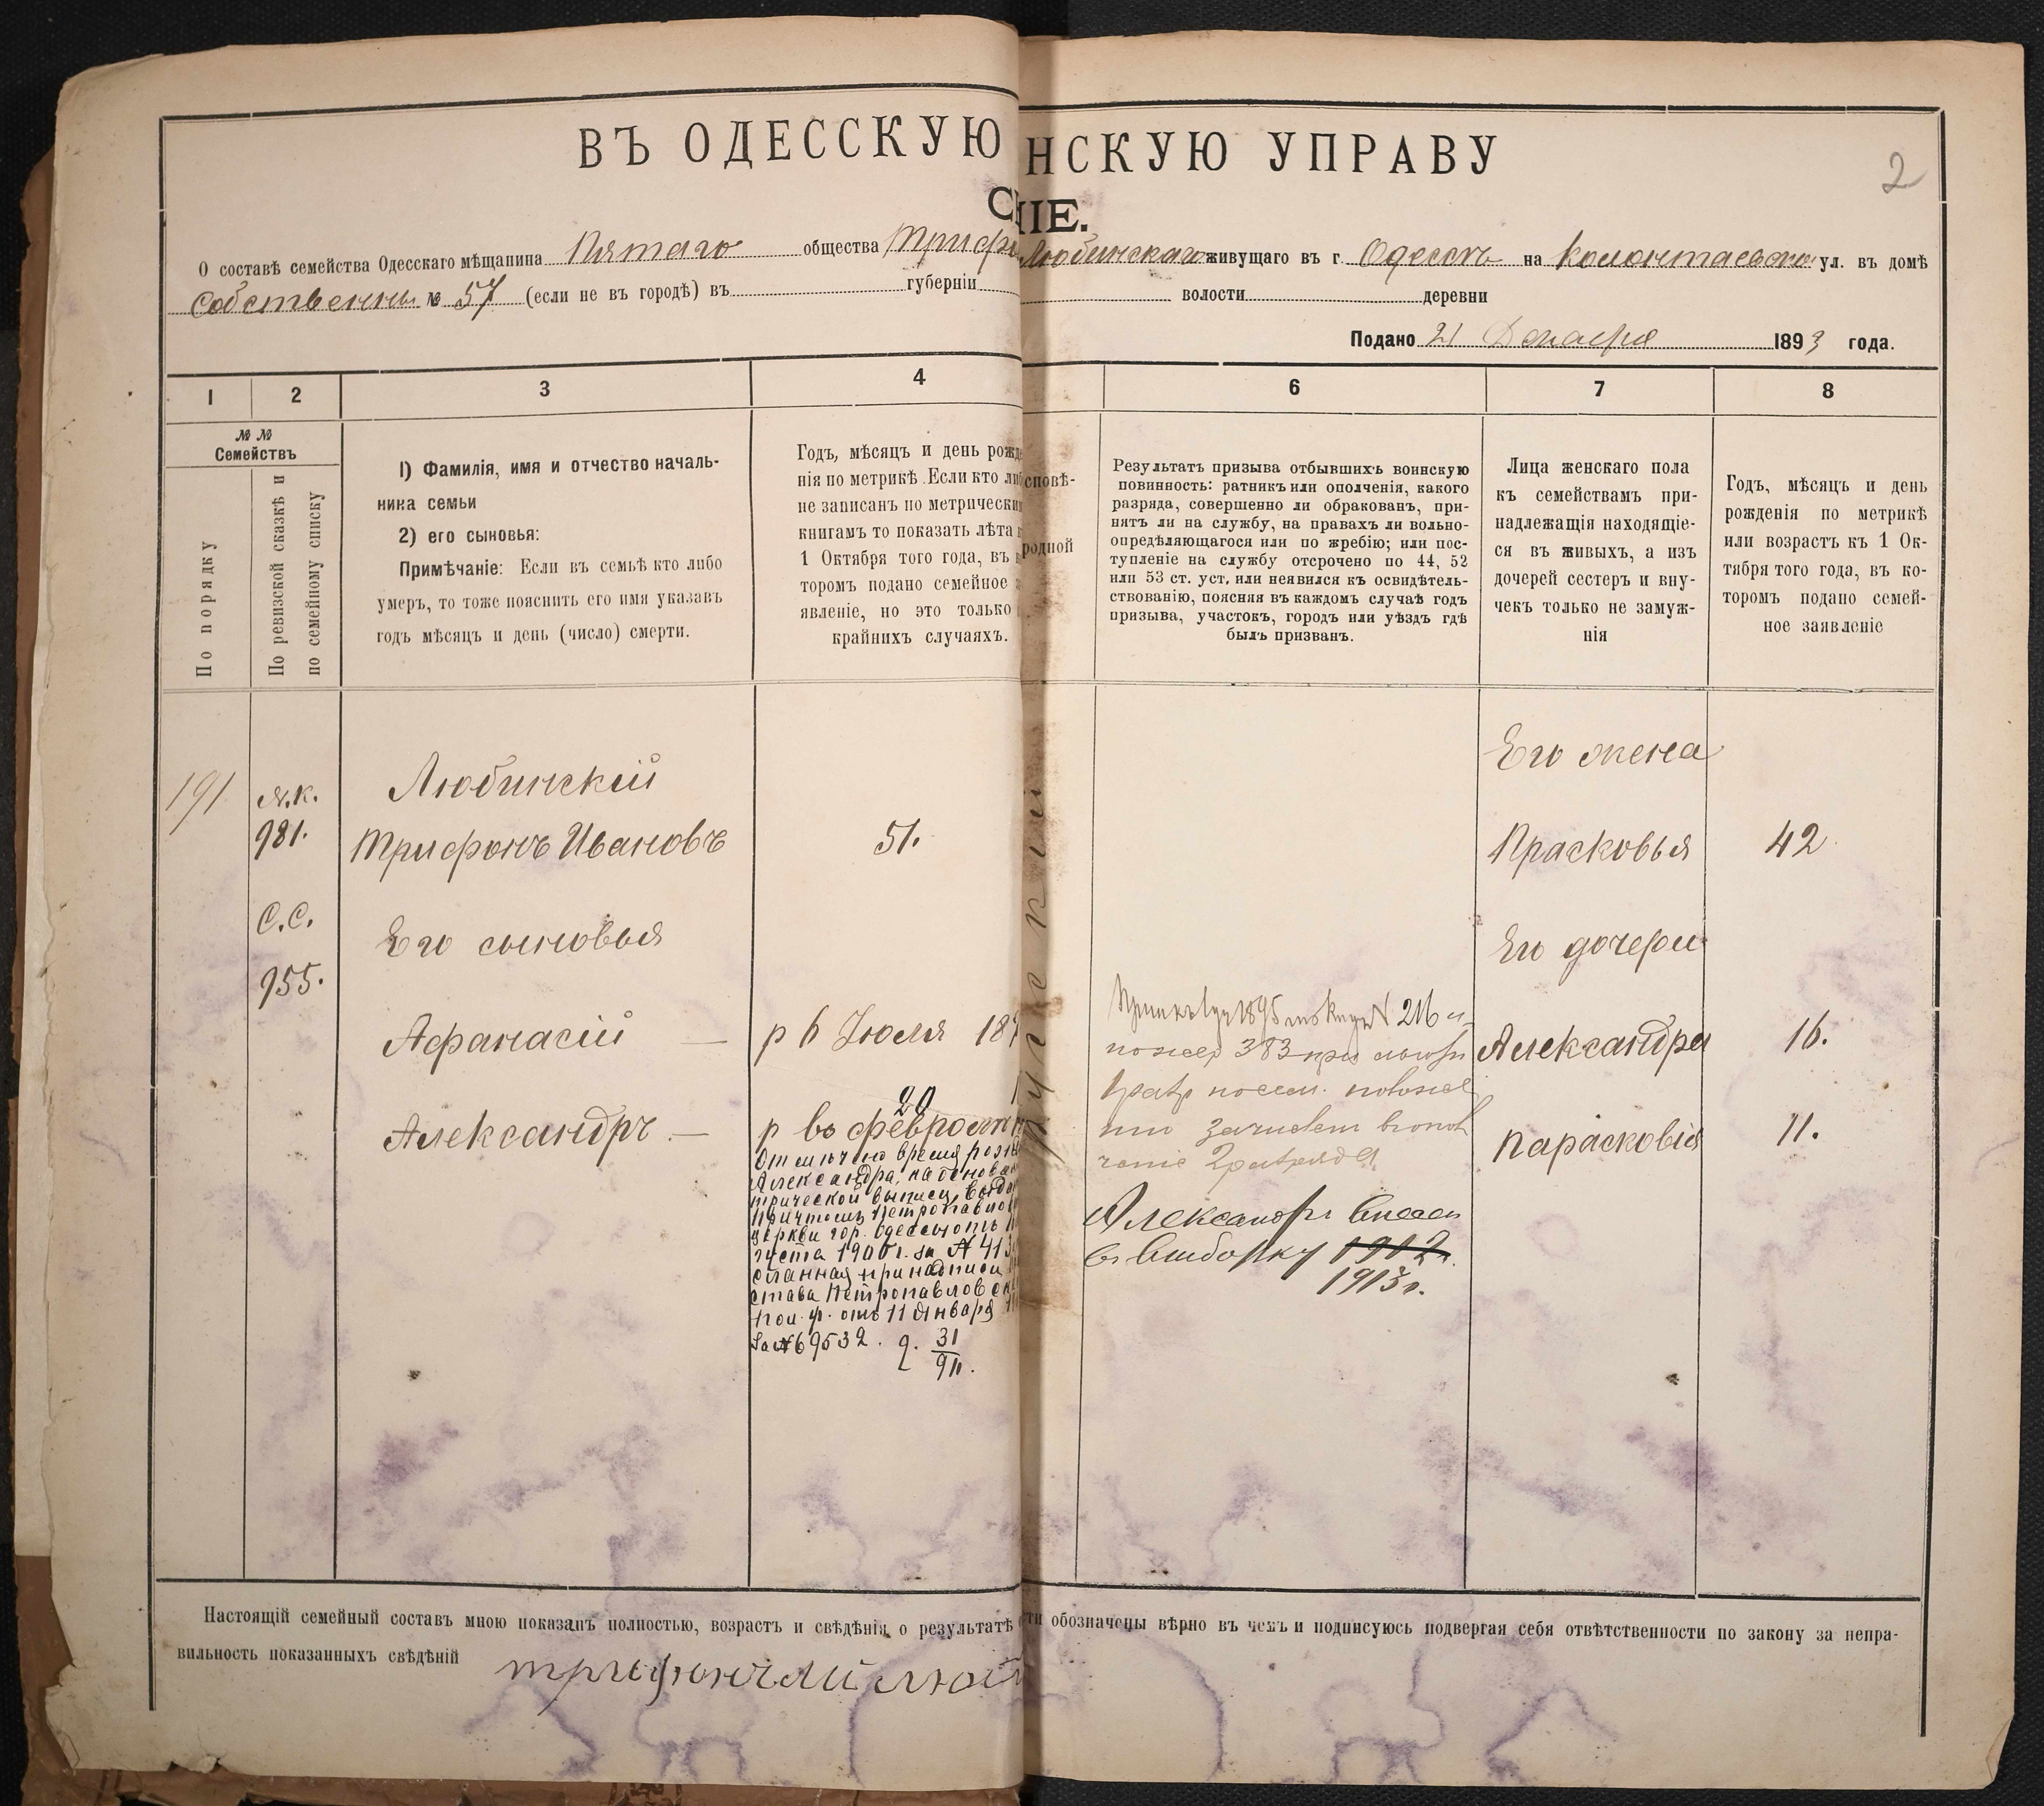 ВЪ ОДЕССКУЮ НСКУЮ УПРАВУ
2
С НІЕ.
О составѣ семейства Одесскаго мѣщанина Пятаго общества Трифо Любинскаго живущаго въ г. Одессѣ на Колонтаевско ул. въ домѣ
Собственны № 57 (если не въ городѣ) въ губерніи волости деревни
Подано 21 Декабря 1893 года.
1 2 3 4 6 7 8
№ №
Семействъ
По порядку
По ревизской сказкѣ и
по семейному списку
1) Фамилія, имя и отчество началь-
ника семьи
2) его сыновья:
Примѣчаніе: Если въ семьѣ кто либо
умеръ, то тоже пояснить его имя указавъ
годъ мѣсяцъ и день (число) смерти.
Годъ, мѣсяцъ и день рожде
нія по метрикѣ. Если кто либ
не записанъ по метрически
книгамъ то показать лѣта
1 Октября того года, въ
торомъ подано семейное
явленіе, но это только
крайнихъ случаяхъ.
сповѣ-
родной
Результатъ призыва отбывшихъ воинскую
повинность: ратникъ или ополченія, какого
разряда, совершенно ли обракованъ, при-
нятъ ли на службу, на правахъ ли вольно-
опредѣляющагося или по жребію; или пос-
тупленіе на службу отсрочено по 44, 52
или 53 ст. уст. или неявился къ освидѣтель-
ствованію, поясняя въ каждомъ случаѣ годъ
призыва, участокъ, городъ или уѣздъ гдѣ
былъ призванъ.
Лица женскаго пола
къ семействамъ при-
надлежащія находящіе-
ся въ живыхъ, а изъ
дочерей сестеръ и вну-
чекъ только не замуж-
нія
Годъ, мѣсяцъ и день
рожденія по метрикѣ
или возрастъ къ 1 Ок-
тября того года, въ ко-
торомъ подано семей-
ное заявленіе
191
981.
С.С.
955.
Любинскій
Трифонъ Ивановъ
51.
Его сыновья
Афанасій —
р 6 Іюля 187
Александръ —
20
р во феврал
Отмѣчено время рож
Александра, на основан
трической выписи, выда
причтомъ Петропавлов
церкви гор. Одессы отъ
густа 1900 г. за № 413
сланная при надписи
става Петропавловск
пол. у. отъ 11 Января
за № 69532. 31
911.
усскій
1895 216
383
зачислен
2 разряда
Александръ внесен
въ выборку 1912
1913 г.
Его жена
Прасковья
42
Его дочери
Александра
16.
Парасковія
11.
Настоящій семейный составъ мною показанъ полностью, возрастъ и свѣдѣнія о результатѣ сти обозначены вѣрно въ чемъ и подписуюсь подвергая себя отвѣтственности по закону за непра-
вильность показанныхъ свѣдѣній